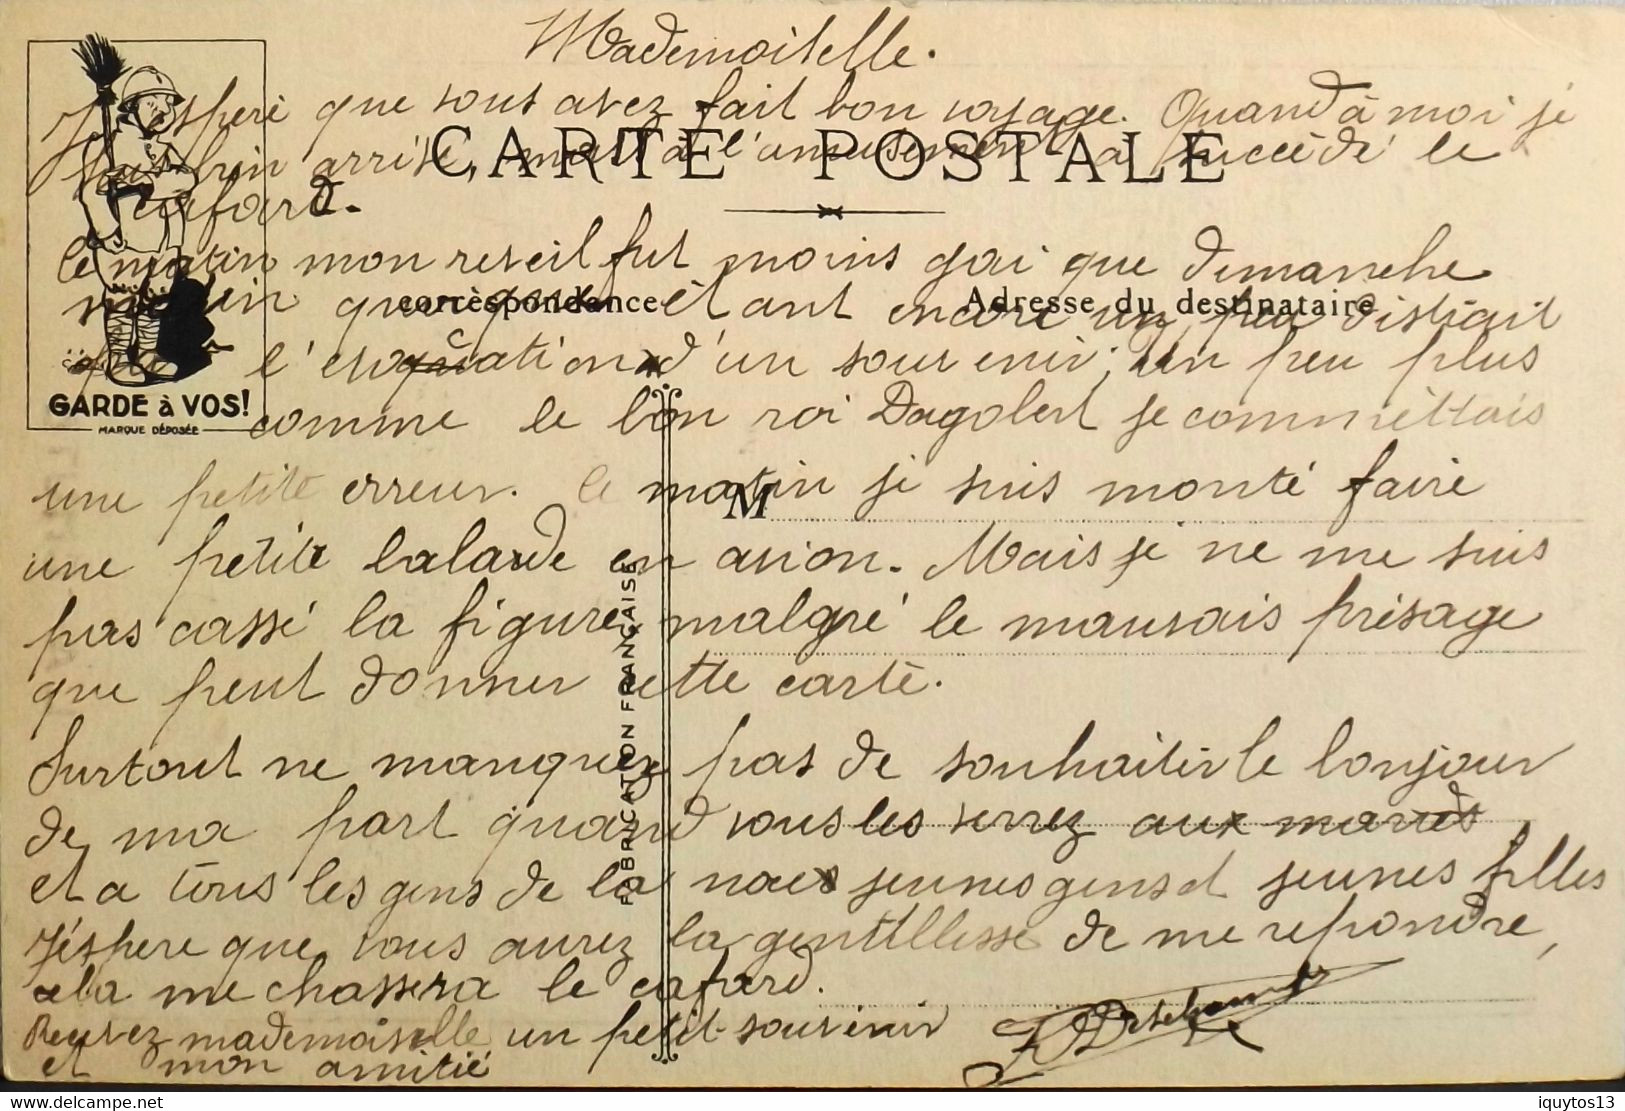 Mademoiselle.
J'espère que vous avez fait bon voyage. Quand à moi je
suis bien arrivé, mais à l'amusement a succédé le
cafard.
CARTE POSTALE
Ce matin mon reveil fut moins gai que dimanche
matin quoique étant encore un peu distrait
correspondance
Adresse du destinataire
par l'evocation d'un souvenir; Un peu plus
GARDE à VOS!
MARQUE DÉPOSÉE
comme le bon roi Dagobert je commèttais
une petite erreur. Ce matin je suis monté faire
M
une petite balade en avion. Mais je ne me suis
pas cassé la figure malgré le mauvais présage
que peut donner cette carte.
FABRICATION FRANÇAISE
Surtout ne manquez pas de souhaiter le bonjour
de ma part quand vous les verrez aux mariés
et a tous les gens de la noce jeunes gens et jeunes filles
J'éspere que vous aurez la gentillesse de me repondre,
cela me chassera le cafard.
Recevez mademoiselle un petit souvenir
et mon amitié
iquytos13